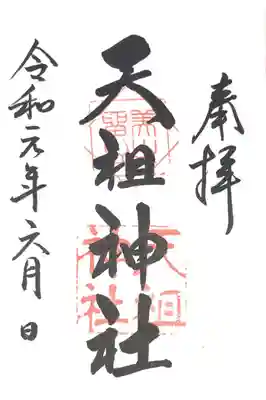 奉拝
天祖神社
令和元年六月 日
天祖神社